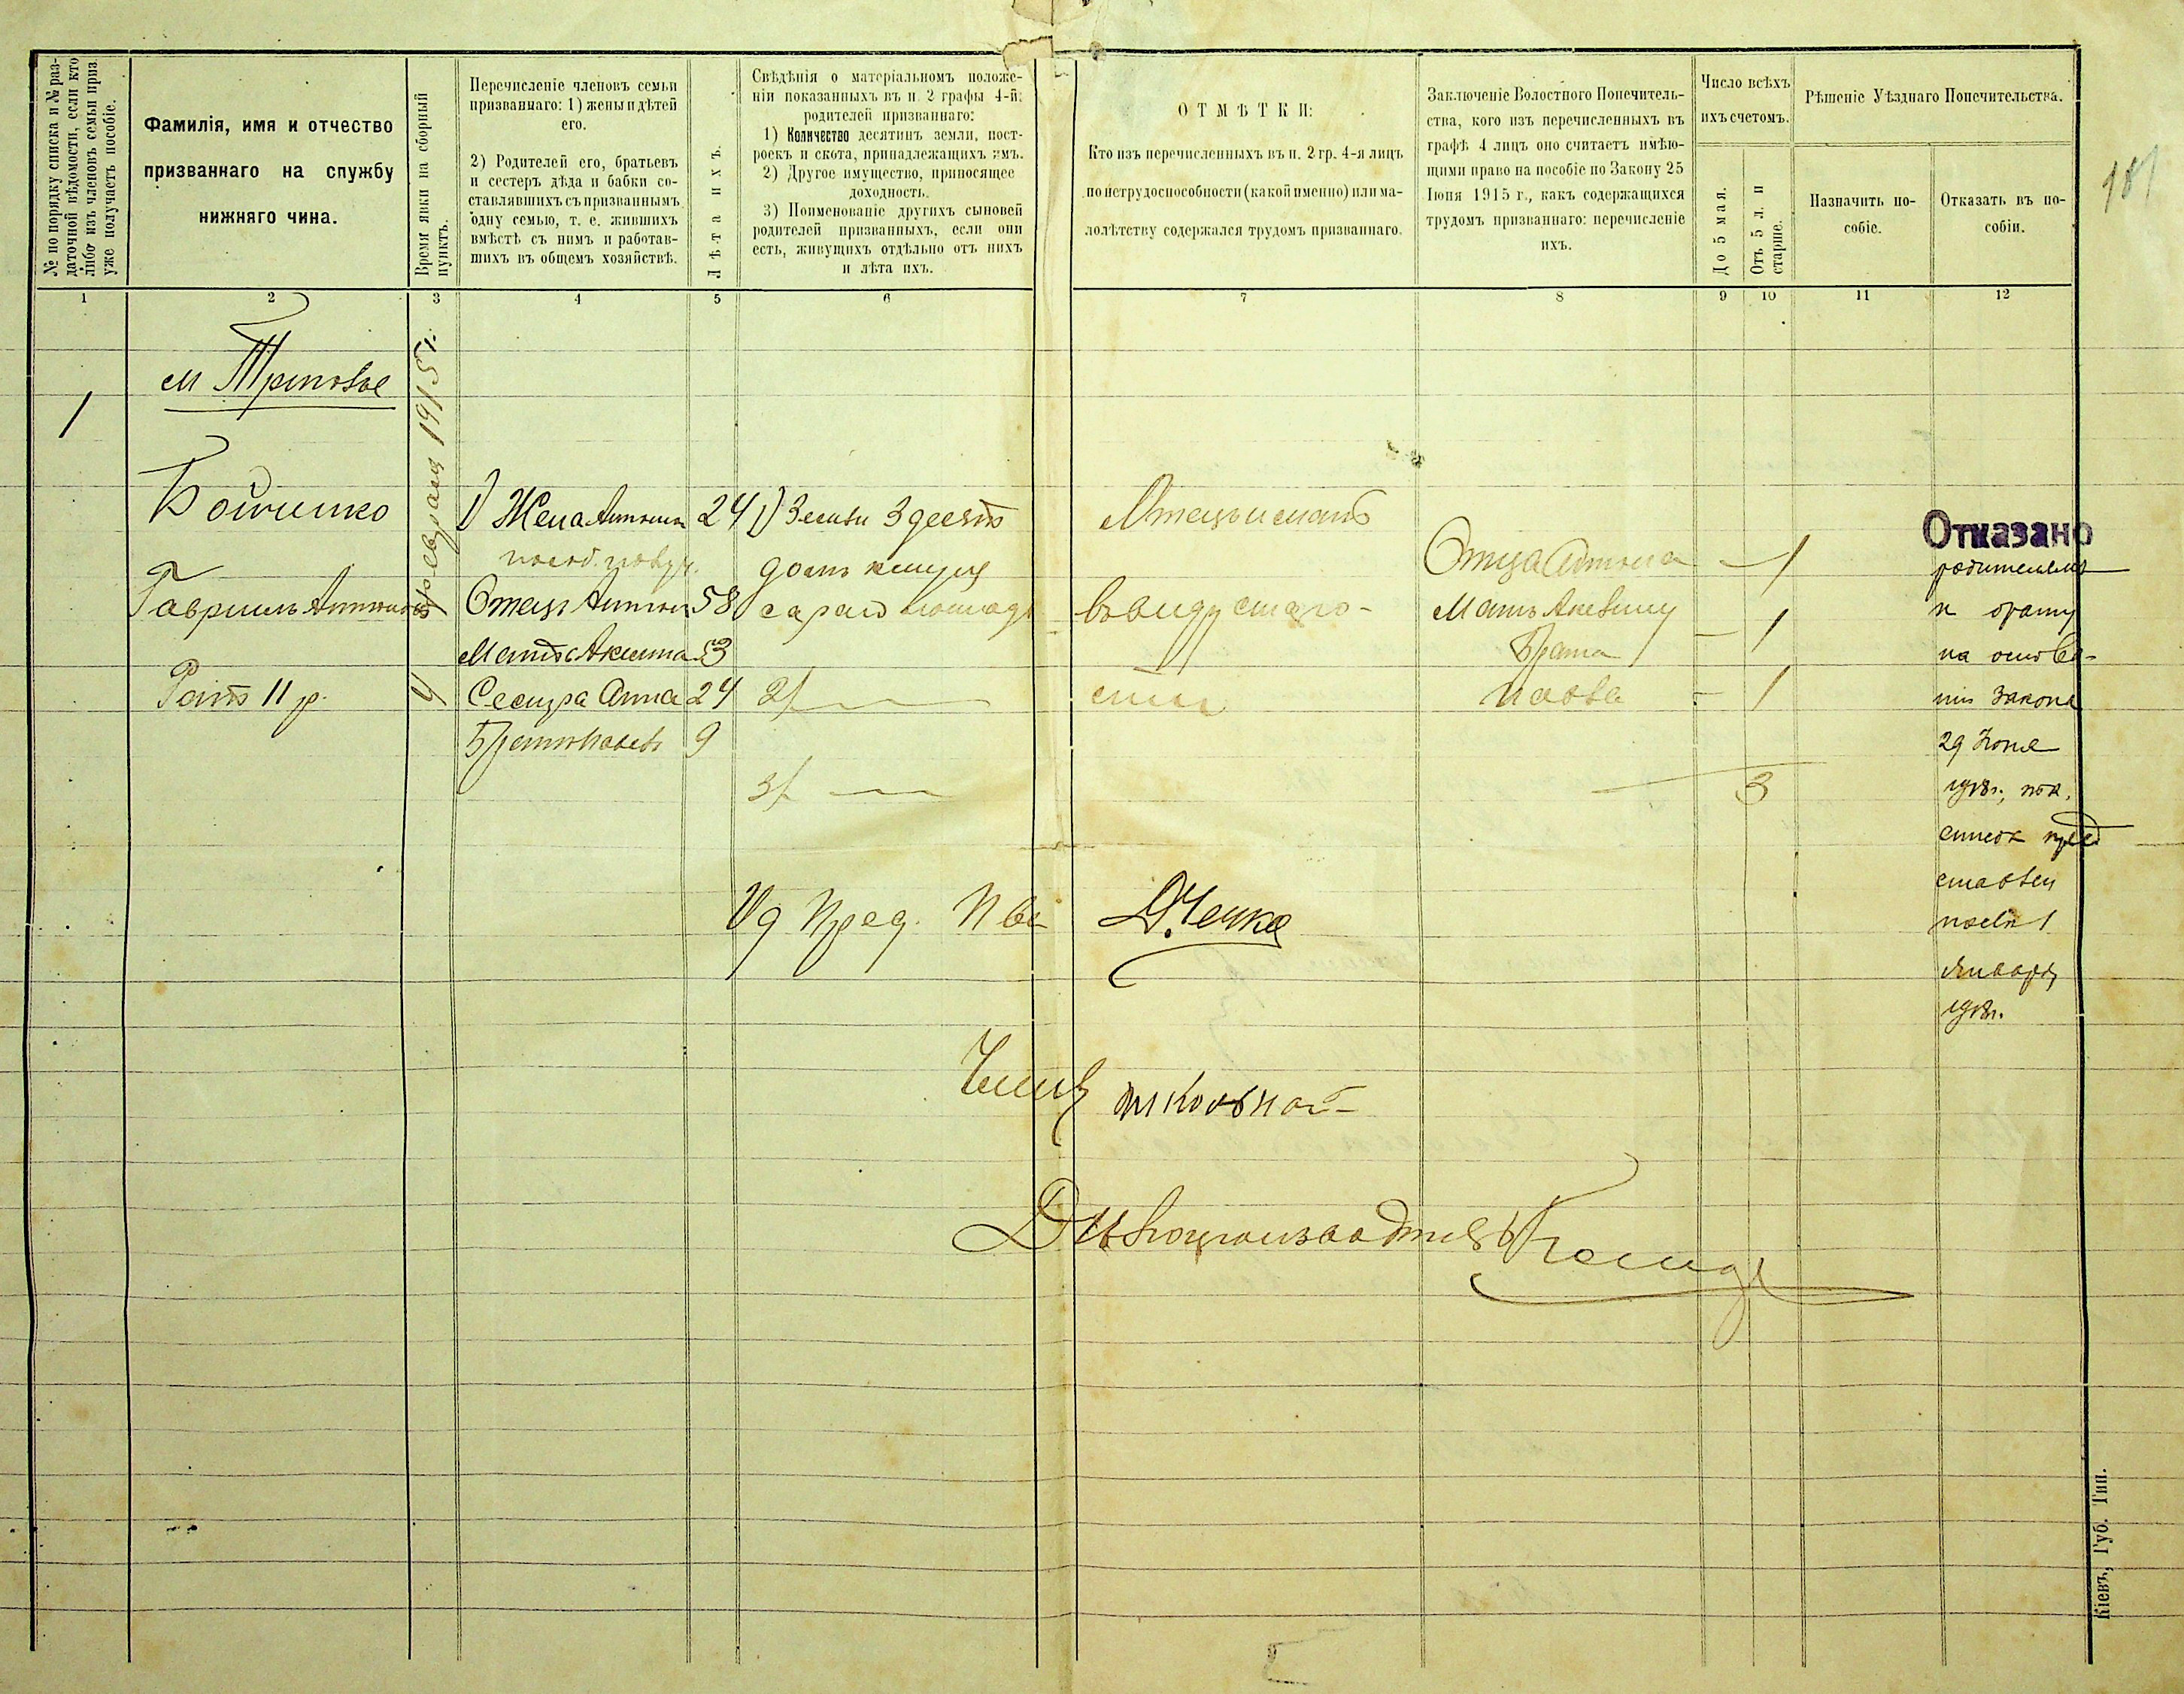 № по порядку списка и № раз-
даточной вѣдомости, если кто
либо изъ членовъ семьи приз.
уже получаетъ пособіе.
Фамилія, имя и отчество
призваннаго на службу
нижняго чина.
Время явки на сборный
пунктъ.
Перечисленіе членовъ семьи
призваннаго: 1) жены и дѣтей
его.
2) Родителей его, братьевъ
и сестеръ дѣда и бабки со-
ставлявшихъ съ призваннымъ
одну семью, т. е. жившихъ
вмѣстѣ съ нимъ и работав-
шихъ въ общемъ хозяйствѣ.
Лѣта ихъ.
Свѣдѣнія о матеріальномъ положе-
ніи показанныхъ въ п. 2 графы 4-й:
родителей призваннаго:
1) Количество десятинъ земли, пост-
роекъ и скота, принадлежащихъ имъ.
2) Другое имущество, приносящее
доходность.
3) Поименованіе другихъ сыновей
родителей призванныхъ, если они
есть, живущихъ отдѣльно отъ нихъ
и лѣта ихъ.
ОТМѢТКИ:
Кто изъ перечисленныхъ въ п. 2 гр. 4-я лицъ
по нетрудоспособности (какой именно) или ма-
лолѣтству содержался трудомъ призваннаго.
Заключеніе Волостного Попечитель-
ства, кого изъ перечисленныхъ въ
графѣ 4 лицъ оно считаетъ имѣю-
щими право на пособіе по Закону 25
Іюня 1915 г., какъ содержащихся
трудомъ призваннаго: перечисленіе
ихъ.
Число всѣхъ
ихъ счетомъ.
До 5 мая.
Отъ 5 л. и
старше.
Рѣшеніе Уѣзднаго Попечительства.
Назначить по-
собіе.
Отказать въ по-
собіи.
187
1 2 3 4 5 6 7 8 9 10 11 12
м Триполье
1
Бойченко
Гавриилъ Антоновъ
Ратн 11 р.
4 февраля 1915 г.
1) Жена 24
Отецъ Антон 58
Мать 53
Сестра Анна 24
Братъ Павелъ 9
1) Земли 3 десят
домъ клуня
сарай лошадь
2)
3)
Отецъ и мать
въ виду старо-
сти
Отца Антона - 1
Мать - 1
Брата
Павла - 1
3
Отказано
родителямъ
и брату
на основа-
ніи закона
29 Іюня
1918 г., пок.
список пред
ставлен
послѣ 1
Января
1918 г.
Ид Пред. П
Членъ
Дѣлопроизводитель
Кіевъ, Губ. Тип.